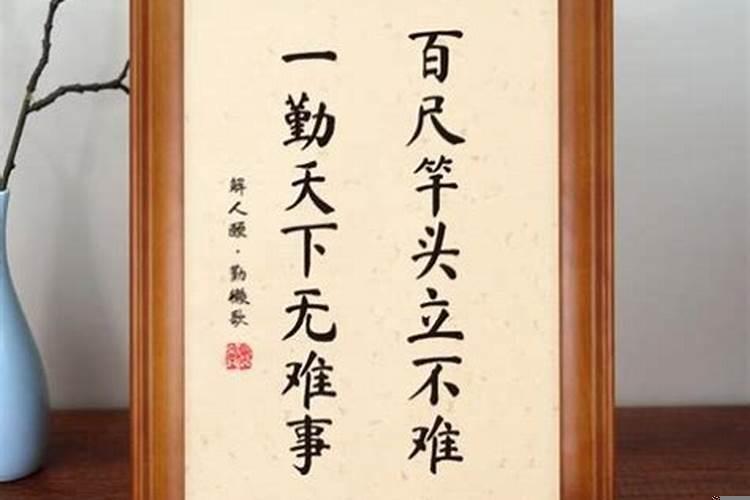 百尺竿头立不难
一勤天下无难事
解人颐·勤懒歌